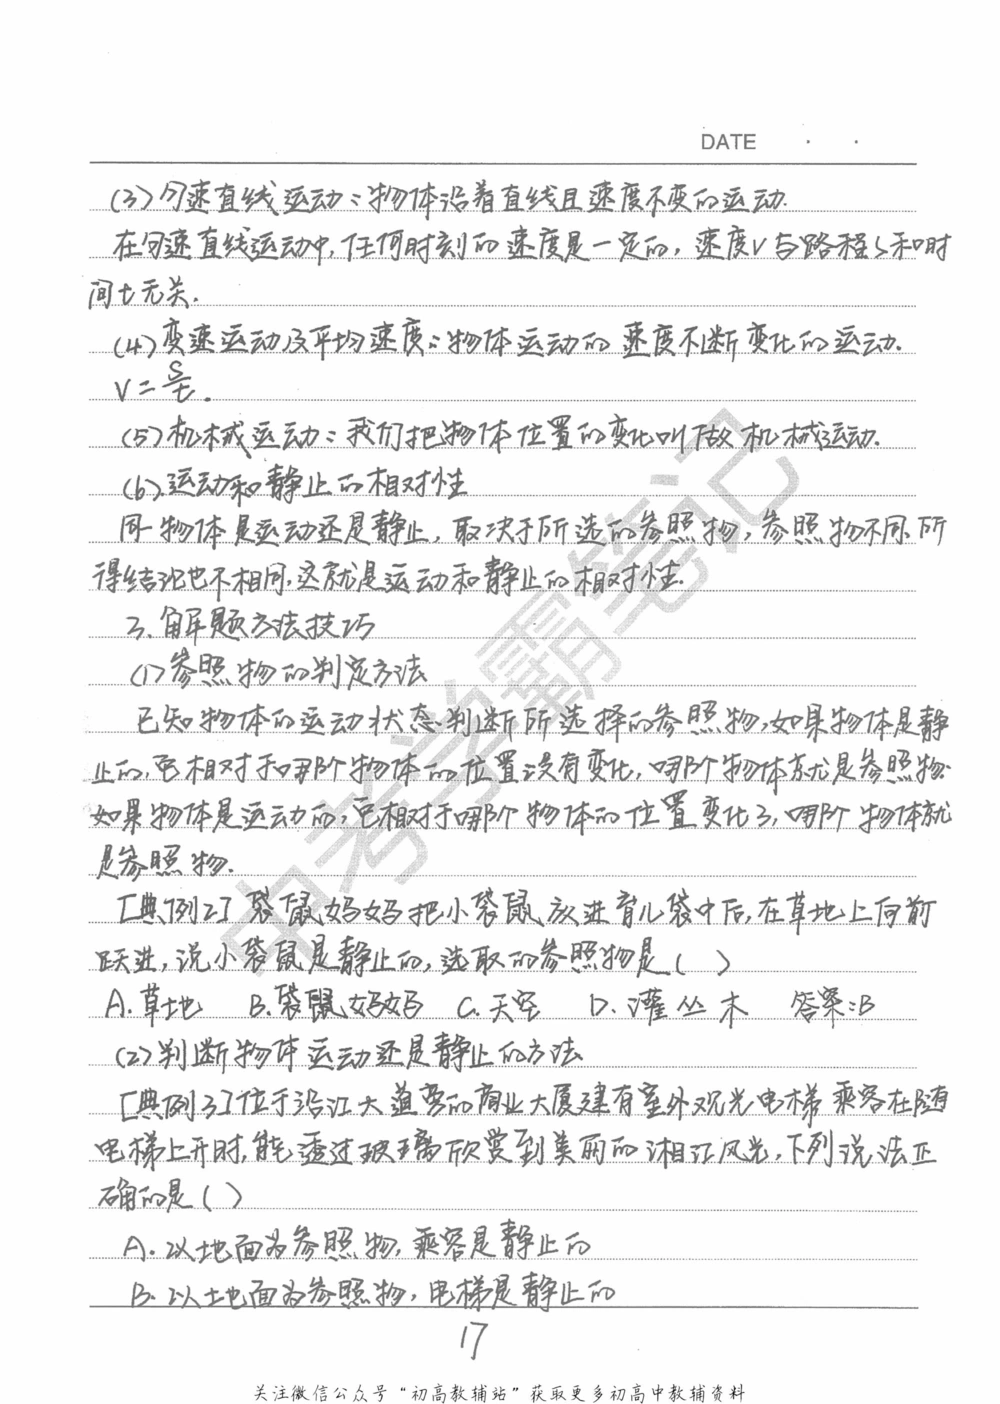 DATE · ·
(3)匀速直线运动:物体沿着直线且速度不变的运动.
在匀速直线运动中,任何时刻的速度是一定的,速度V与路程S和时
间t无关.
(4)变速运动及平均速度:物体运动的速度不断变化的运动.
V=S/t.
(5)机械运动:我们把物体位置的变化叫做机械运动.
(6).运动和静止的相对性
同一物体是运动还是静止,取决于所选的参照物,参照物不同,所
得结论也不相同,这就是运动和静止的相对性.
3.解题方法技巧
(1)参照物的判定方法
已知物体的运动状态判断所选择的参照物,如果物体是静
止的,它相对于哪个物体的位置没有变化,哪个物体就是参照物.
如果物体是运动的,它相对于哪个物体的位置变化了,哪个物体就
是参照物.
[典例2]袋鼠妈妈把小袋鼠放进育儿袋中后,在草地上向前
跃进,说小袋鼠是静止的,选取的参照物是( )
A.草地 B.袋鼠妈妈 C.天空 D.灌丛木 答案:B
(2)判断物体运动还是静止的方法
[典例3]位于沿江大道旁的商业大厦建有室外观光电梯乘客在随
电梯上升时,能透过玻璃欣赏到美丽的湘江风光,下列说法正
确的是( )
A.以地面为参照物,乘客是静止的
B.以地面为参照物,电梯是静止的
17
关注微信公众号“初高教辅站”获取更多初高中教辅资料
中考学霸笔记